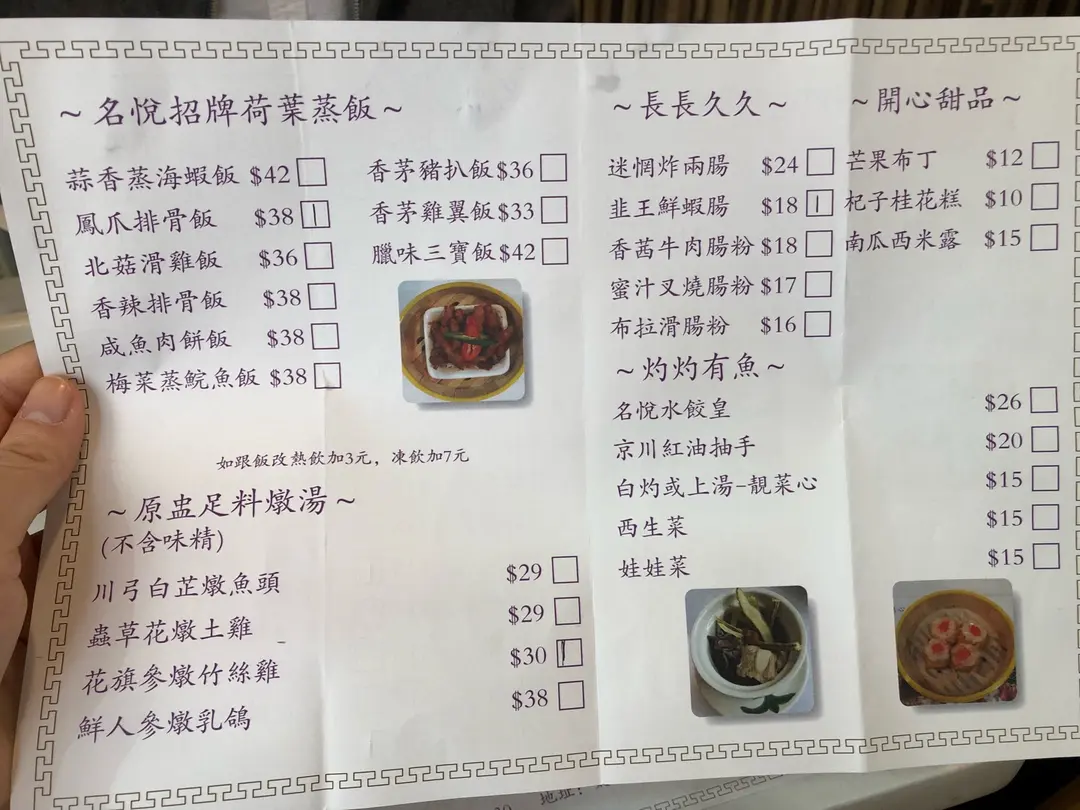 ～名悅招牌荷葉蒸飯～
蒜香蒸海蝦飯 $42
鳳爪排骨飯 $38
北菇滑雞飯 $36
香辣排骨飯 $38
咸魚肉餅飯 $38
梅菜蒸鯇魚飯 $38
香茅豬扒飯 $36
香茅雞翼飯 $33
臘味三寶飯 $42
如跟飯改熱飲加3元，凍飲加7元
～原盅足料燉湯～
(不含味精)
川弓白芷燉魚頭 $29
蟲草花燉土雞 $29
花旗參燉竹絲雞 $30
鮮人參燉乳鴿 $38
～長長久久～
迷惘炸兩腸 $24
韭王鮮蝦腸 $18
香茜牛肉腸粉 $18
蜜汁叉燒腸粉 $17
布拉滑腸粉 $16
～灼灼有魚～
名悅水餃皇 $26
京川紅油抽手 $20
白灼或上湯-靚菜心 $15
西生菜 $15
娃娃菜 $15
～開心甜品～
芒果布丁 $12
杞子桂花糕 $10
南瓜西米露 $15
地址：